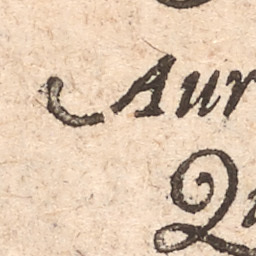 Aur
Q